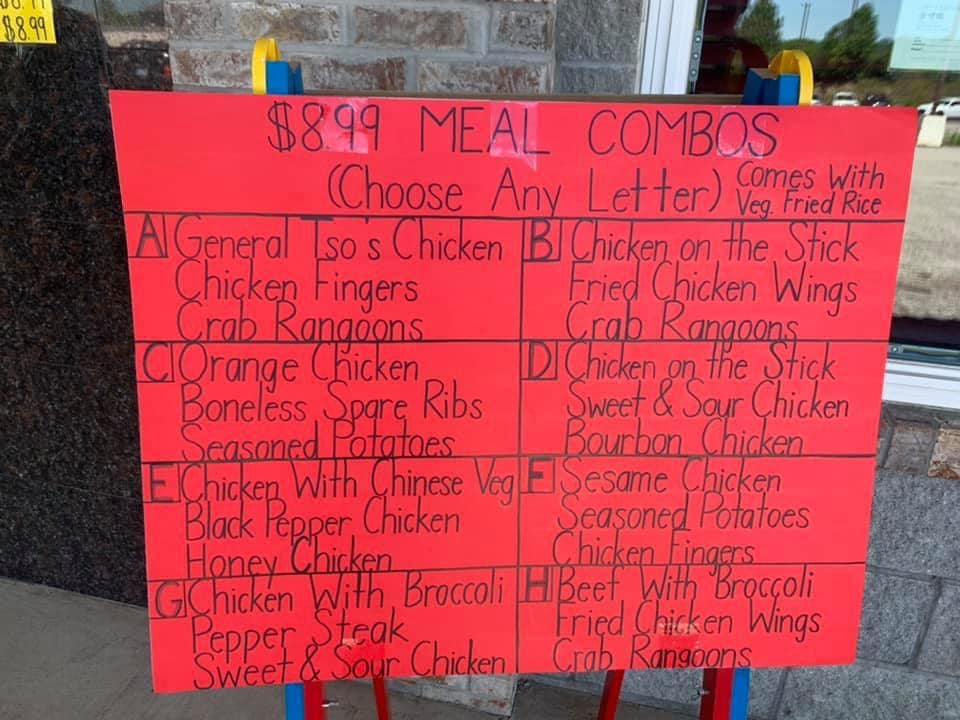 $8.99
$8.99 MEAL COMBOS
(Choose Any Letter) Comes With
Veg. Fried Rice
A General Tso's Chicken
Chicken Fingers
Crab Rangoons
B Chicken on the Stick
Fried Chicken Wings
Crab Rangoons
C Orange Chicken
Boneless Spare Ribs
Seasoned Potatoes
D Chicken on the Stick
Sweet & Sour Chicken
Bourbon Chicken
E Chicken With Chinese Veg
Black Pepper Chicken
Honey Chicken
F Sesame Chicken
Seasoned Potatoes
Chicken Fingers
G Chicken With Broccoli
Pepper Steak
Sweet & Sour Chicken
H Beef With Broccoli
Fried Chicken Wings
Crab Rangoons